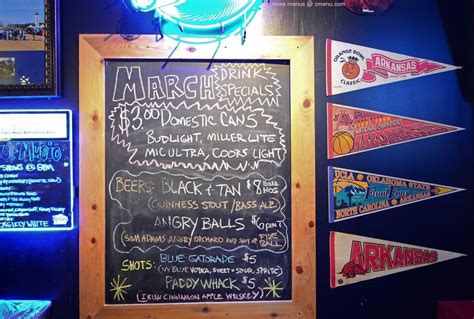 more menus @ zmenu.com
MARCH
DRINK
SPECIALS
$3.00 DOMESTIC CANS
BUDLIGHT, MILLER LITE
MIC ULTRA, COORS LIGHT
BEERS: BLACK & TAN $8
(GUINNESS STOUT/BASS ALE)
ANGRY BALLS $6 PINT
(SAM ADAMS, ANGRY ORCHARD AND SHOT OF FIREBALL)
SHOTS: BLUE GATORADE $5
(UV BLUE VODKA, SWEET & SOUR, SPRITE)
PADDY WHACK $5
(IRISH CINNAMON APPLE WHISKEY)
MUSIC
SHOWS @ 8PM
ORANGE BOWL
CLASSIC
ARKANSAS
NATIONAL CHAMPIONS
UCLA OKLAHOMA STATE
Final Four
NORTH CAROLINA ARKANSAS
ARKANSAS